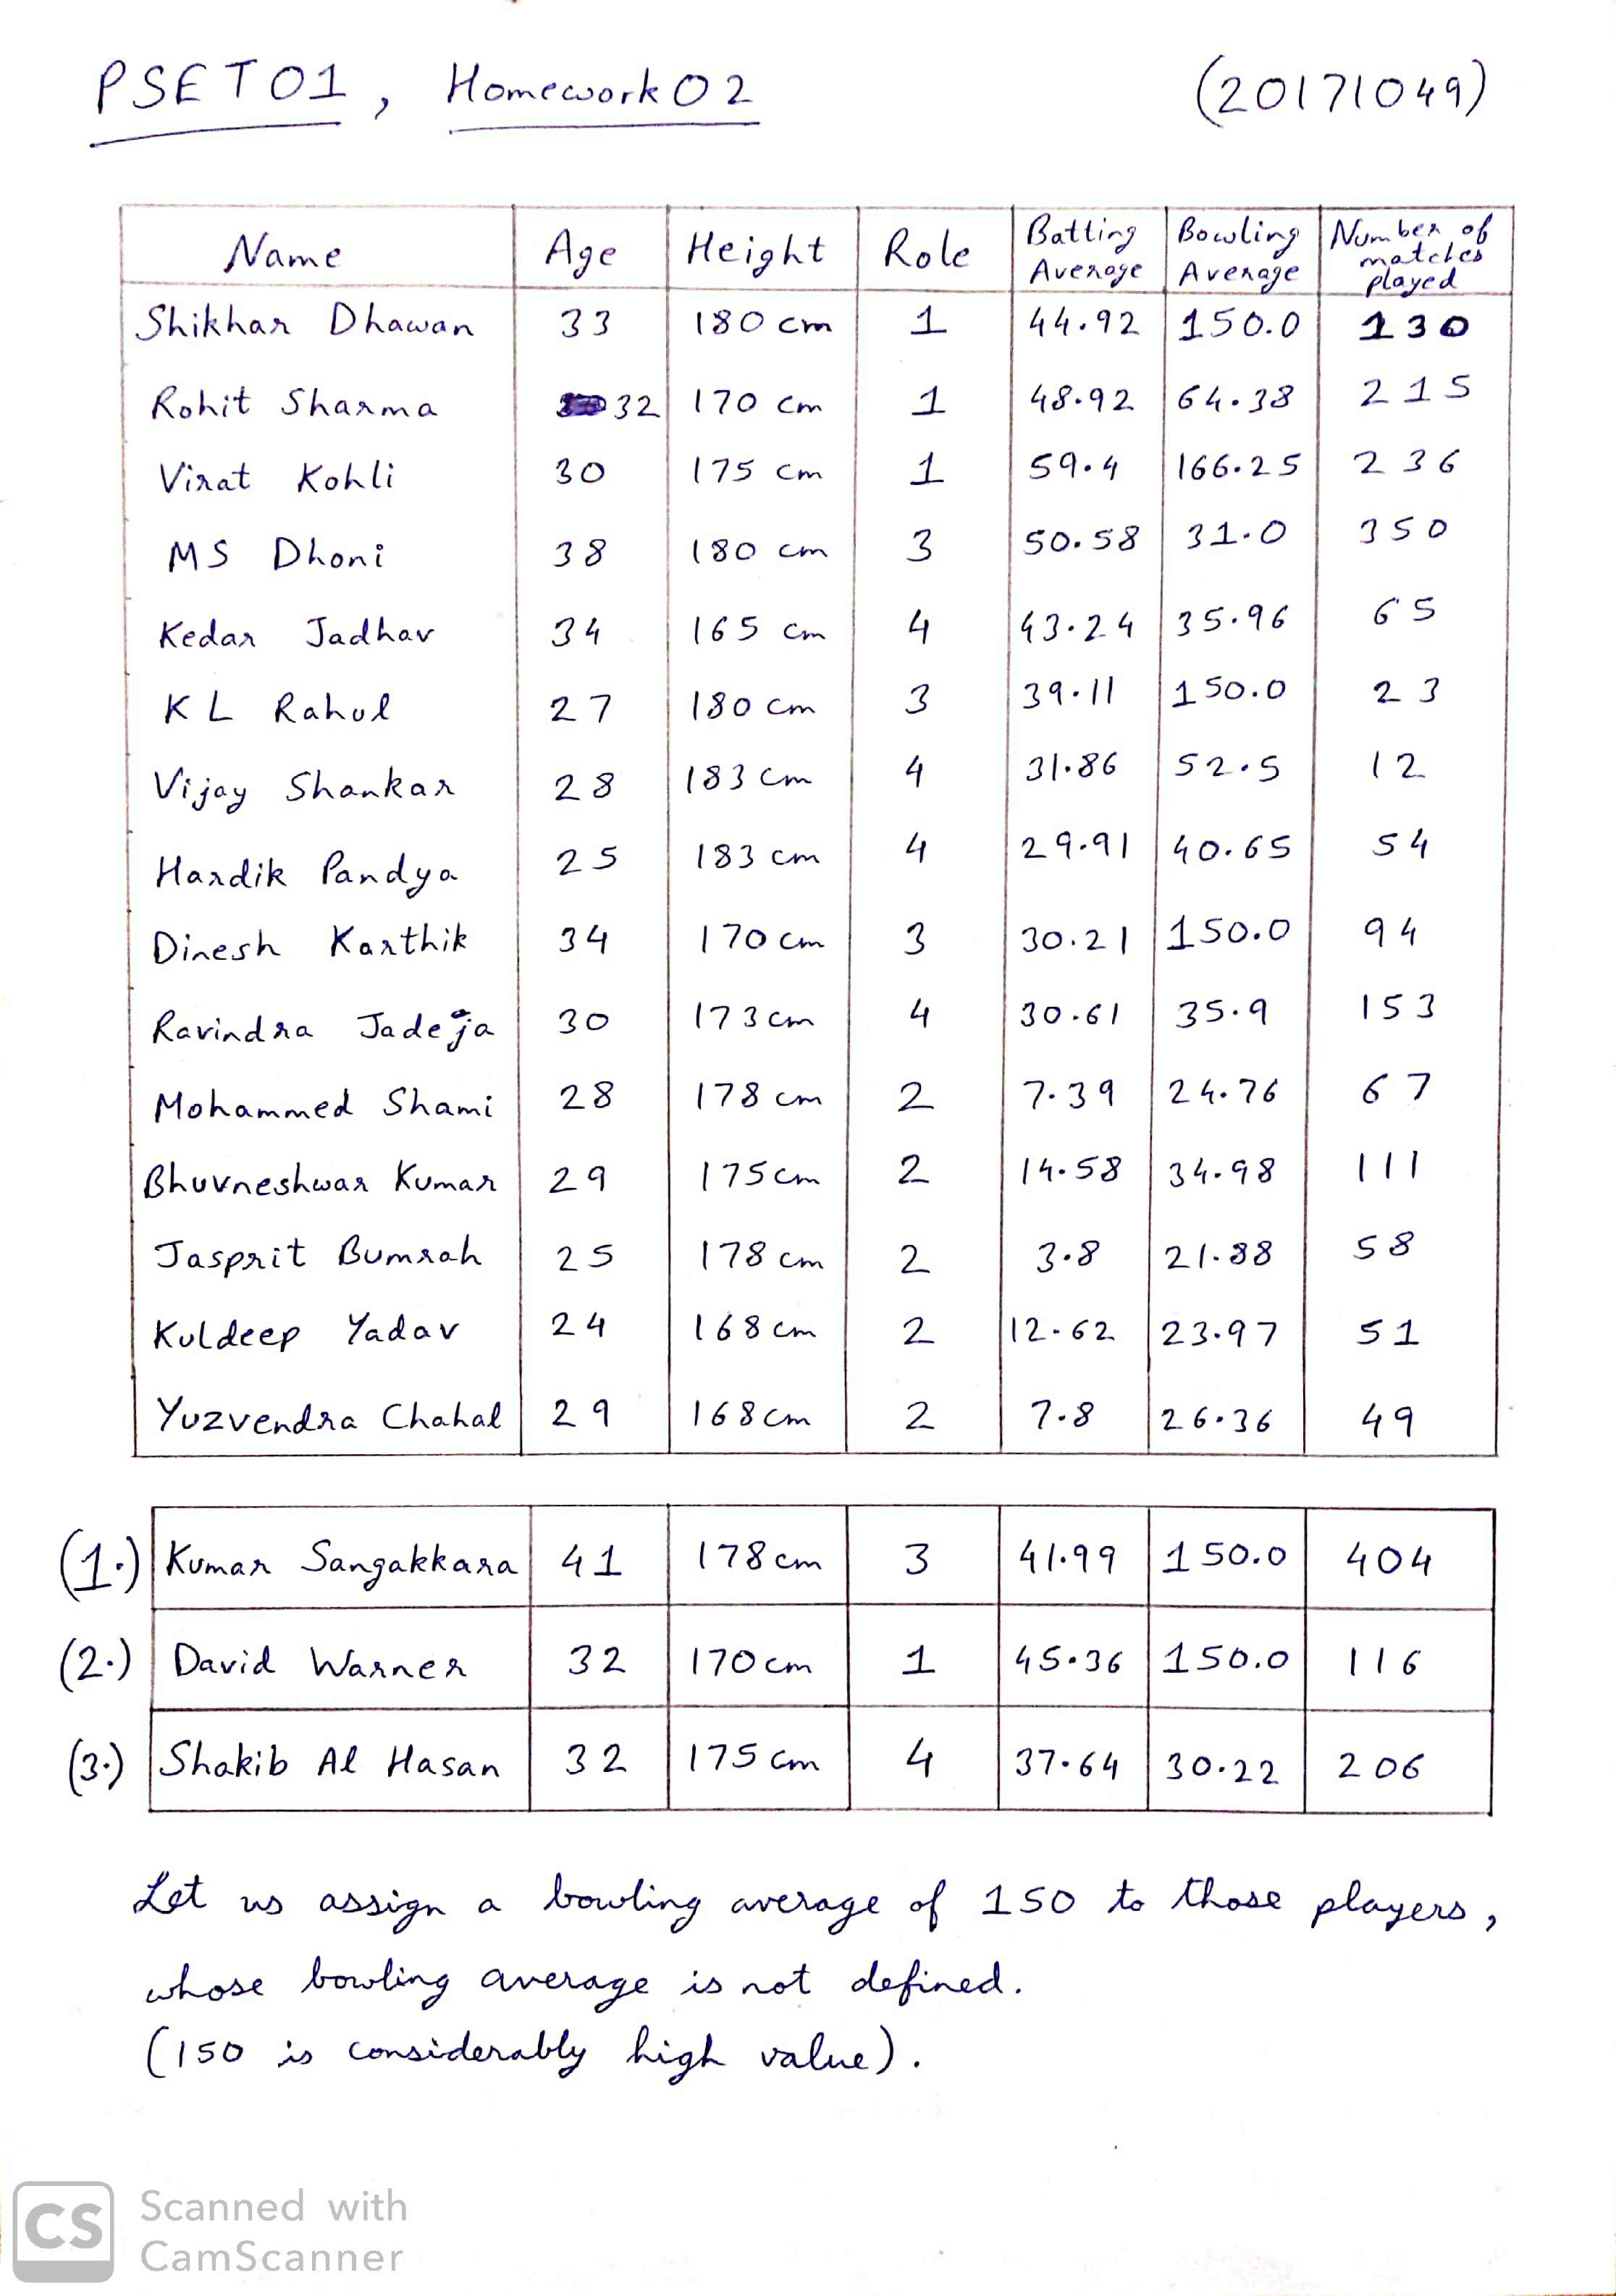 PSET01, Homework 02 (20171049)
Name Age Height Role Batting Average Bowling Average Number of matches played
Shikhar Dhawan 33 180 cm 1 44.92 150.0 130
Rohit Sharma 32 170 cm 1 48.92 64.38 215
Virat Kohli 30 175 cm 1 59.4 166.25 236
MS Dhoni 38 180 cm 3 50.58 31.0 350
Kedar Jadhav 34 165 cm 4 43.24 35.96 65
KL Rahul 27 180 cm 3 39.11 150.0 23
Vijay Shankar 28 183 cm 4 31.86 52.5 12
Hardik Pandya 25 183 cm 4 29.91 40.65 54
Dinesh Karthik 34 170 cm 3 30.21 150.0 94
Ravindra Jadeja 30 173 cm 4 30.61 35.9 153
Mohammed Shami 28 178 cm 2 7.39 24.76 67
Bhuvneshwar Kumar 29 175 cm 2 14.58 34.98 111
Jasprit Bumrah 25 178 cm 2 3.8 21.88 58
Kuldeep Yadav 24 168 cm 2 12.62 23.97 51
Yuzvendra Chahal 29 168 cm 2 7.8 26.36 49
(1.) Kumar Sangakkara 41 178 cm 3 41.99 150.0 404
(2.) David Warner 32 170 cm 1 45.36 150.0 116
(3.) Shakib Al Hasan 32 175 cm 4 37.64 30.22 206
Let us assign a bowling average of 150 to those players,
whose bowling average is not defined.
(150 is considerably high value).
CS Scanned with
CamScanner